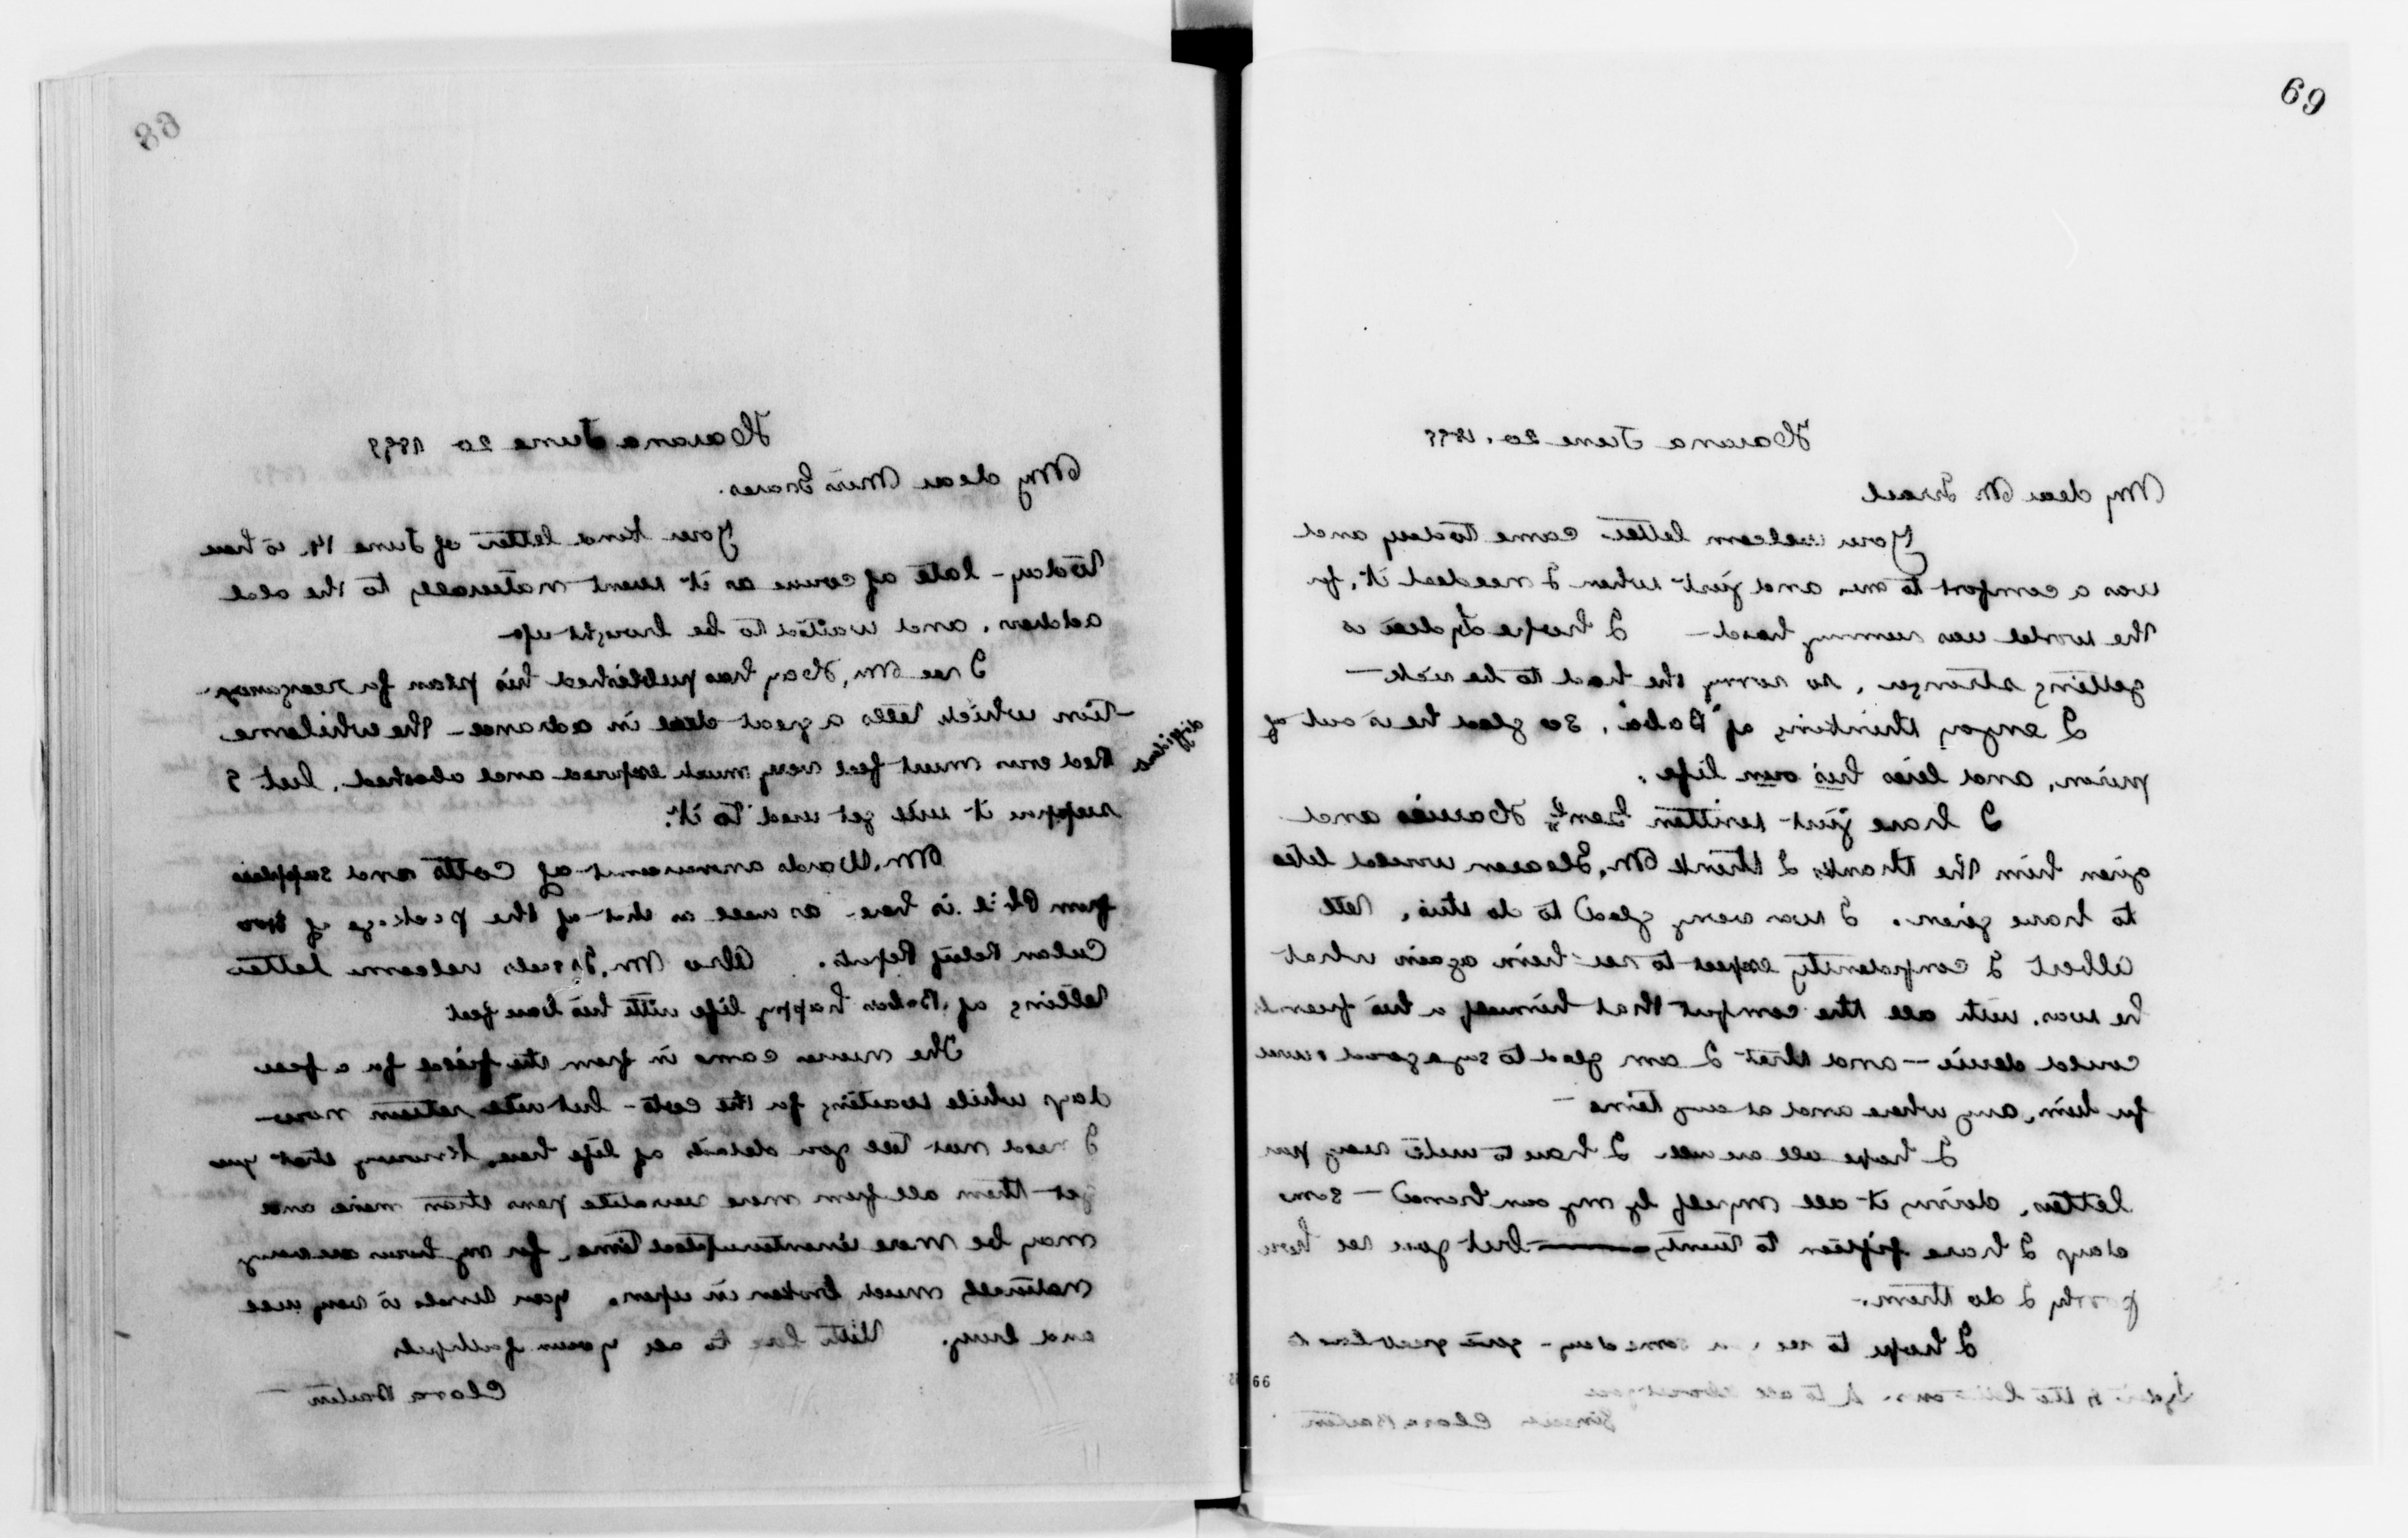 68
Havana June 20 1899
My dear Miss Graves.
Your kind letter of June 14. is here
today - late of course as it went naturally to the old
address, and waited to be brought up
I see Mr. Hay has published his plan for reorganiza-
tion which tells a great deal in advance - The whilome
dignitary
Red cross must feel very much exposed and abashed, but I
suppose it will get used to it.
Mr. Wards announcement of Cotts and supplies
from Ph'il is here as well as that of the package of two
Cuban Relief Reports. Also Mr. Israels welcome letter
telling of Babas happy life with his bare feet
The nurses came in from the field for a few
days while waiting for the cots - but will return now
I need not tell you details of life here, knowing that you
get them all from more reliable pens than mine and
may be more uninterrupted time, for my hours are very
naturally much broken in upon. your uncle is very well
and busy. With love to all yours faithfully
Clara Barton
69
Havana June 20. 1899
My dear Mr Israel
Your welcom letter came today and
was a comfort to me and just when I needed it, for
the world was running hard - I hope Lydia is
getting stronger, so sorry she had to be sick -
I enjoy thinking of "Baba", so glad he is out of
prison, and lives his own life.
I have just written Genl. Harries and
given him the thanks I think Mr. Heaven would like
to have given. I was very glad to do this. Tell
Albert I confidently expect to see him again what
he was, with all the comfort that himself or his friends
could desire - and that I am glad to say a good word
for him, any where and at any time -
I hope all are well I have to write very poor
letters, doing it all myself by my own hand - some
days I have fifteen to twenty but you see how
poorly I do them.
I hope to see you some day - give great love to
Lydia & the little ones & to all about you
Sincerely Clara Barton
66